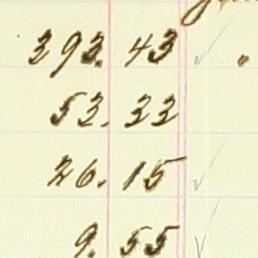 393.43
53.33
26.15
9.55